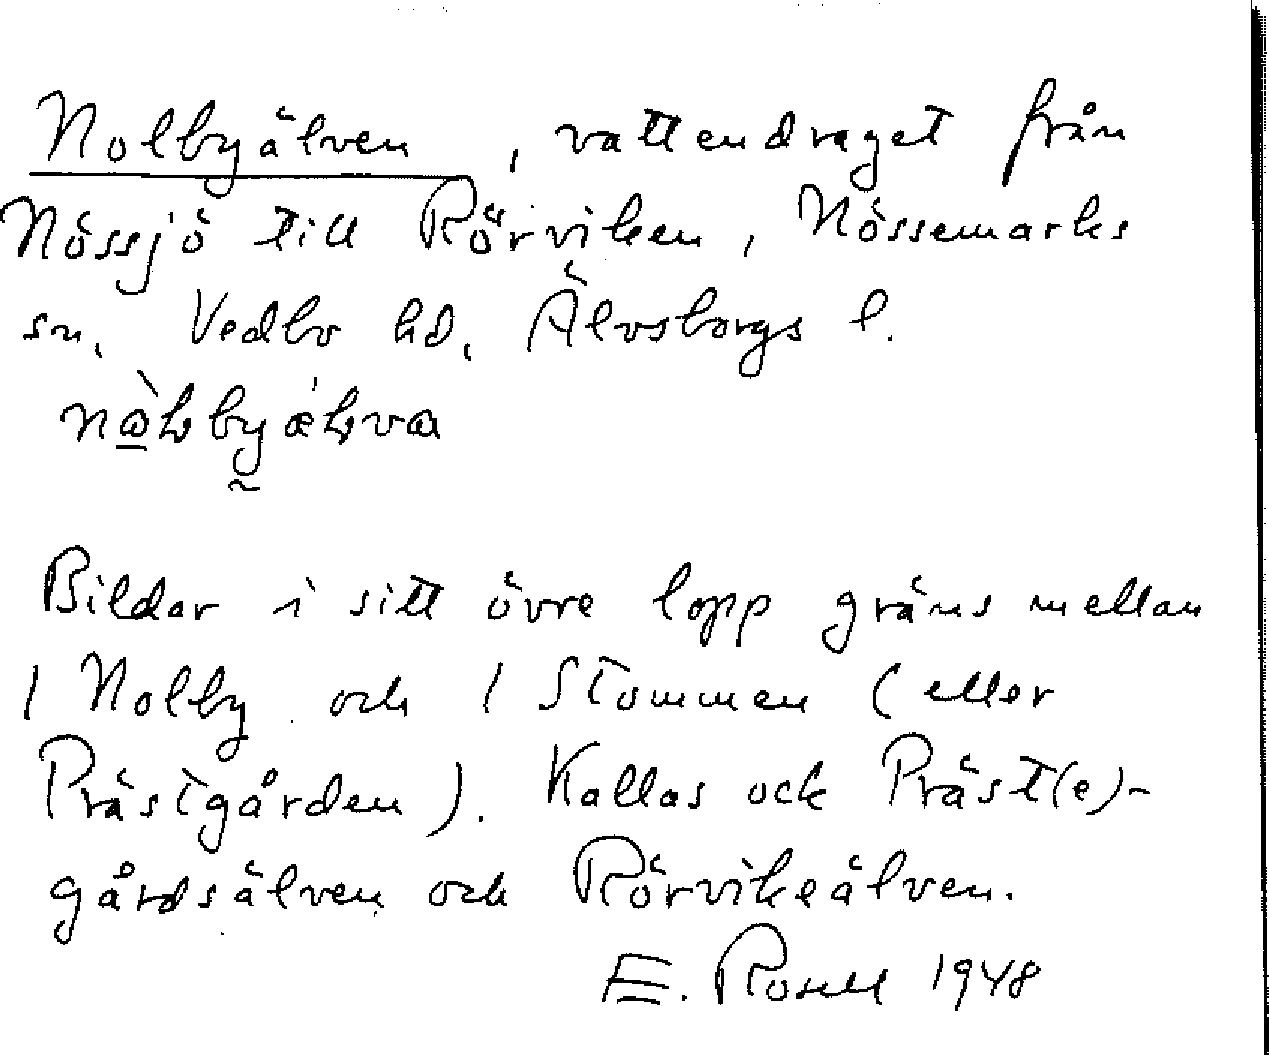 Nolbyälven, vattendraget från
Nössjö till Rörviken, Nössemarks
sn, Vedbo hd, Älvsborgs l.
Bildar i sitt övre lopp gräns mellan
1 Nolby och 1 Stommen (eller
Prästgården). Kallas och Präst(e)-
gårdsälven och Rörvikeälven.
E. Rosell 1948